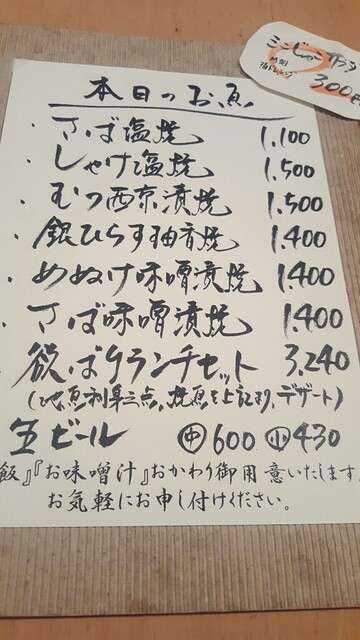 本日のお魚
さば塩焼 1,100
しゃけ塩焼 1,500
むつ西京漬焼 1,500
銀ひらす柚香焼 1,400
めぬけ味噌漬焼 1,400
さば味噌漬焼 1,400
欲ばりランチセット 3,240
(地魚刺身三点、焼魚を上記より、デザート)
生ビール ㊥600 ㊙430
飯』『お味噌汁』おかわり御用意いたします
お気軽にお申し付けください。
サラダ
300